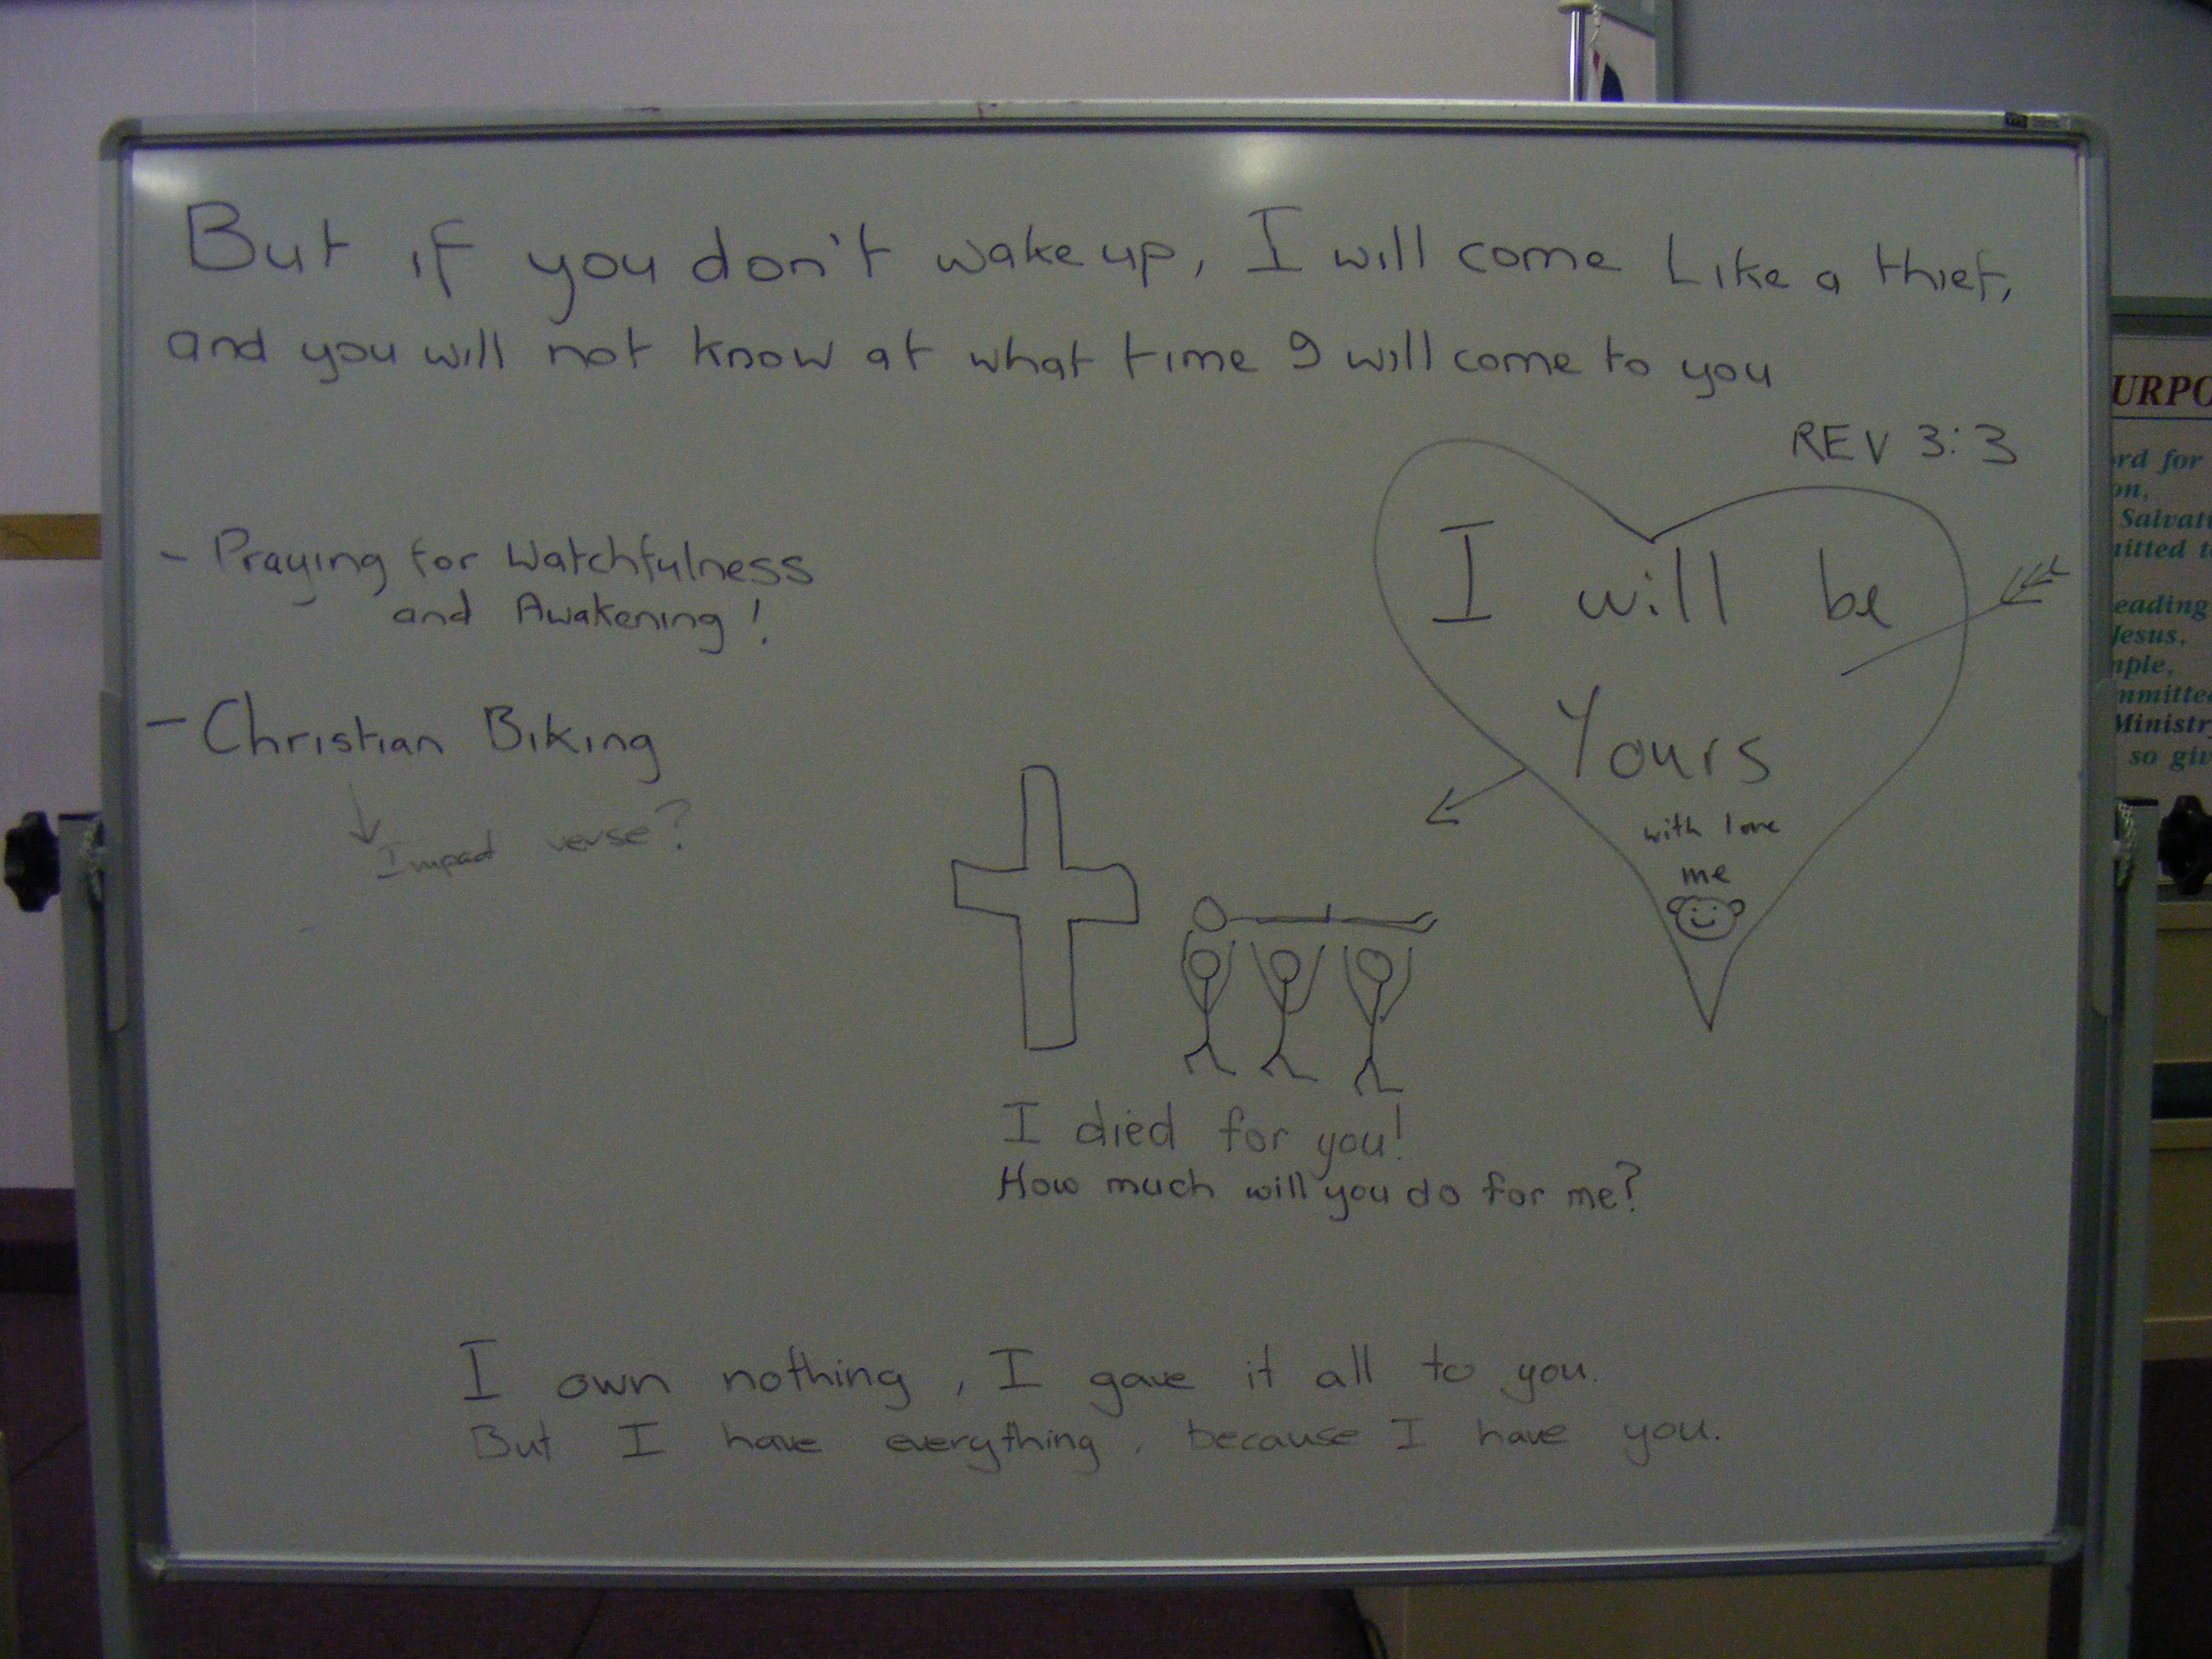 But if you don't wake up, I will come Like a thief,
and you will not know at what time I will come to you
REV 3:3
- Praying for Watchfulness
and Awakening!
- Christian Biking
Impact verse?
I will be
Yours
with love
me
I died for you!
How much will you do for me?
I own nothing, I gave it all to you.
But I have everything, because I have you.
URPO
rd for
on,
Salvati
itted t
eading
Jesus,
mple,
mmitte
Ministr
so giv